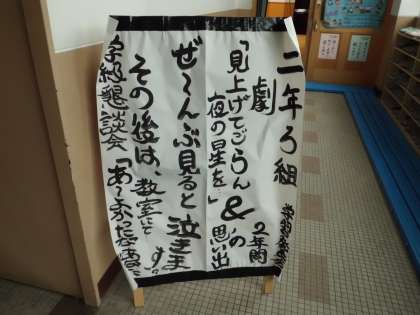 二年ろ組
劇
「見上げてごらん
夜の星を…
&
2年間
の
思い出
ぜ〜んぶ見ると泣きます。
その後は、教室にて
学級懇談会